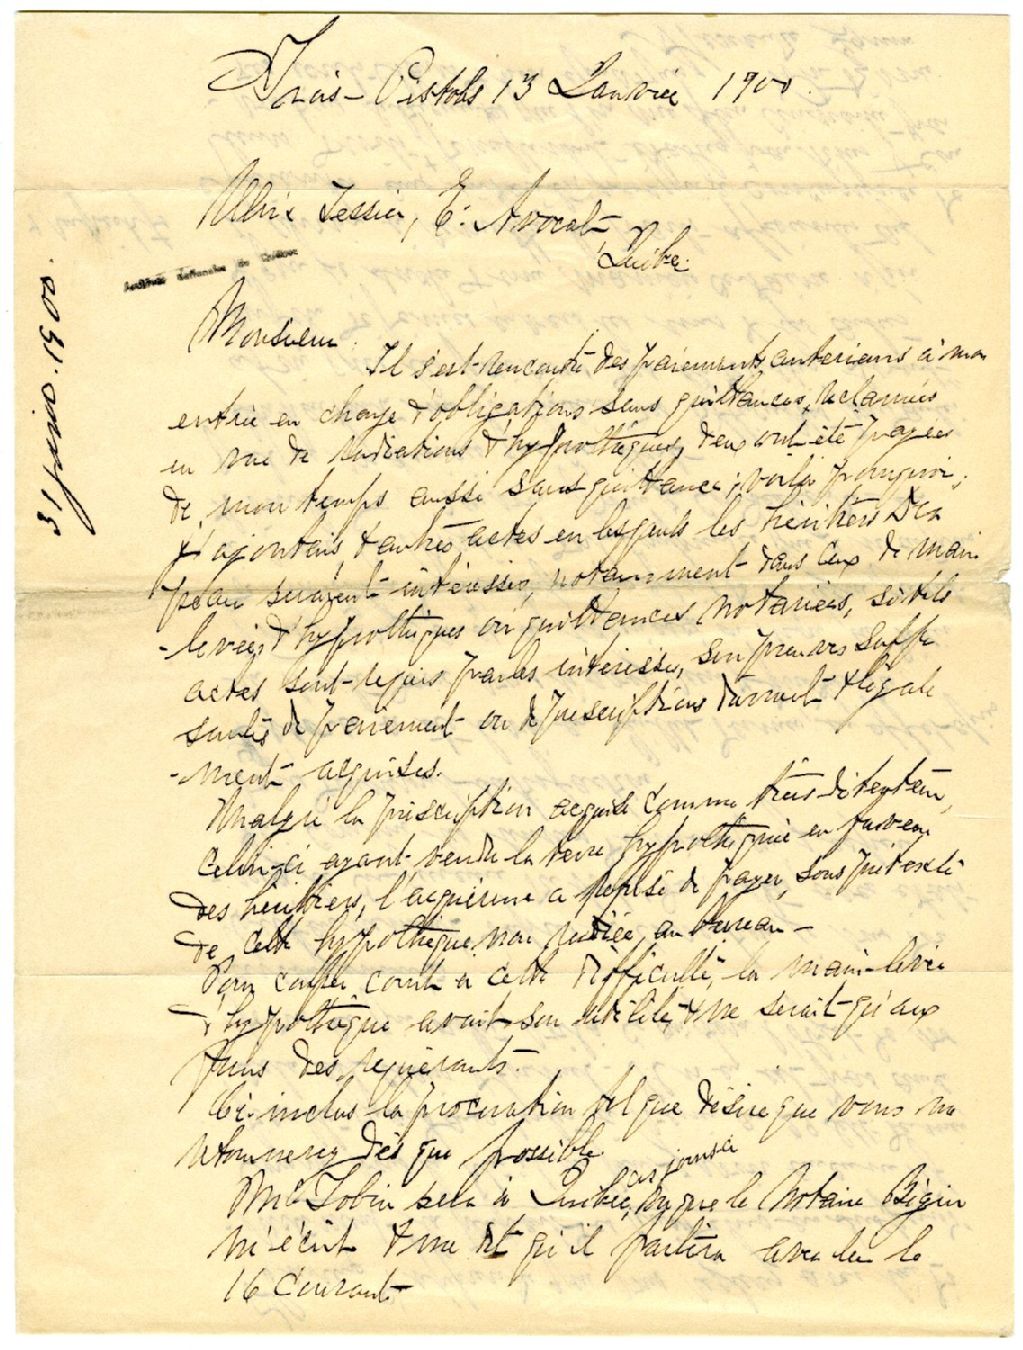 Trois-Pistoles 13 Janvier 1900.
Ulric Tessier, E. Avocat
Québec
Archives nationales du Québec
31 janv. 1900.
Monsieur.
Il s'est rencontré des paiements anterieurs à mon
entrée en charge d'obligations sans quittances, reclamées
en vue de radiations d'hypothèques, deux ont été payées
de mon temps aussi sans quittance; voilà pourquoi,
j'ajoutais, d'autres actes en lesquels les héritiers
seraient intéressés, notamment dans ceux de main
-levées d'hypothèques ou quittances notariées, si tels
actes sont requis par les intéressés, sur preuves suffi
santes de paiement ou de prescriptions dûment & légale
-ment acquises.
Malgré la prescription acquise comme tiers-détenteur,
celui-ci ayant vendu la terre hypothéquée en faveur
des héritiers, l'acquéreur a refusé de payer, sous prétexte
de cette hypothèque non radiée au bureau -
Pour couper court à cette difficulté, la main-levée
d'hypothèque avait son utilité, & ne serait qu'aux
frais des requérants.
Ci-inclus la procuration tel que désiré que vous me
retournerez dès que possible
Mr Tobin sera à Québec, ces jours-ci
vu que le Notaire Bégin
m'écrit & me dit qu'il partira avec lui le
16 Courant